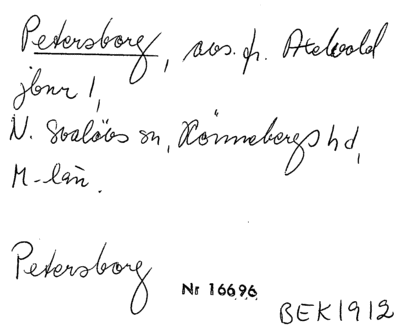 Petersborg, avs. fr. Axelvold
jbnr 1,
N. Svalövs sn, Rönnebergs hd,
M-län.
Petersborg
Nr 16696
BEK1912